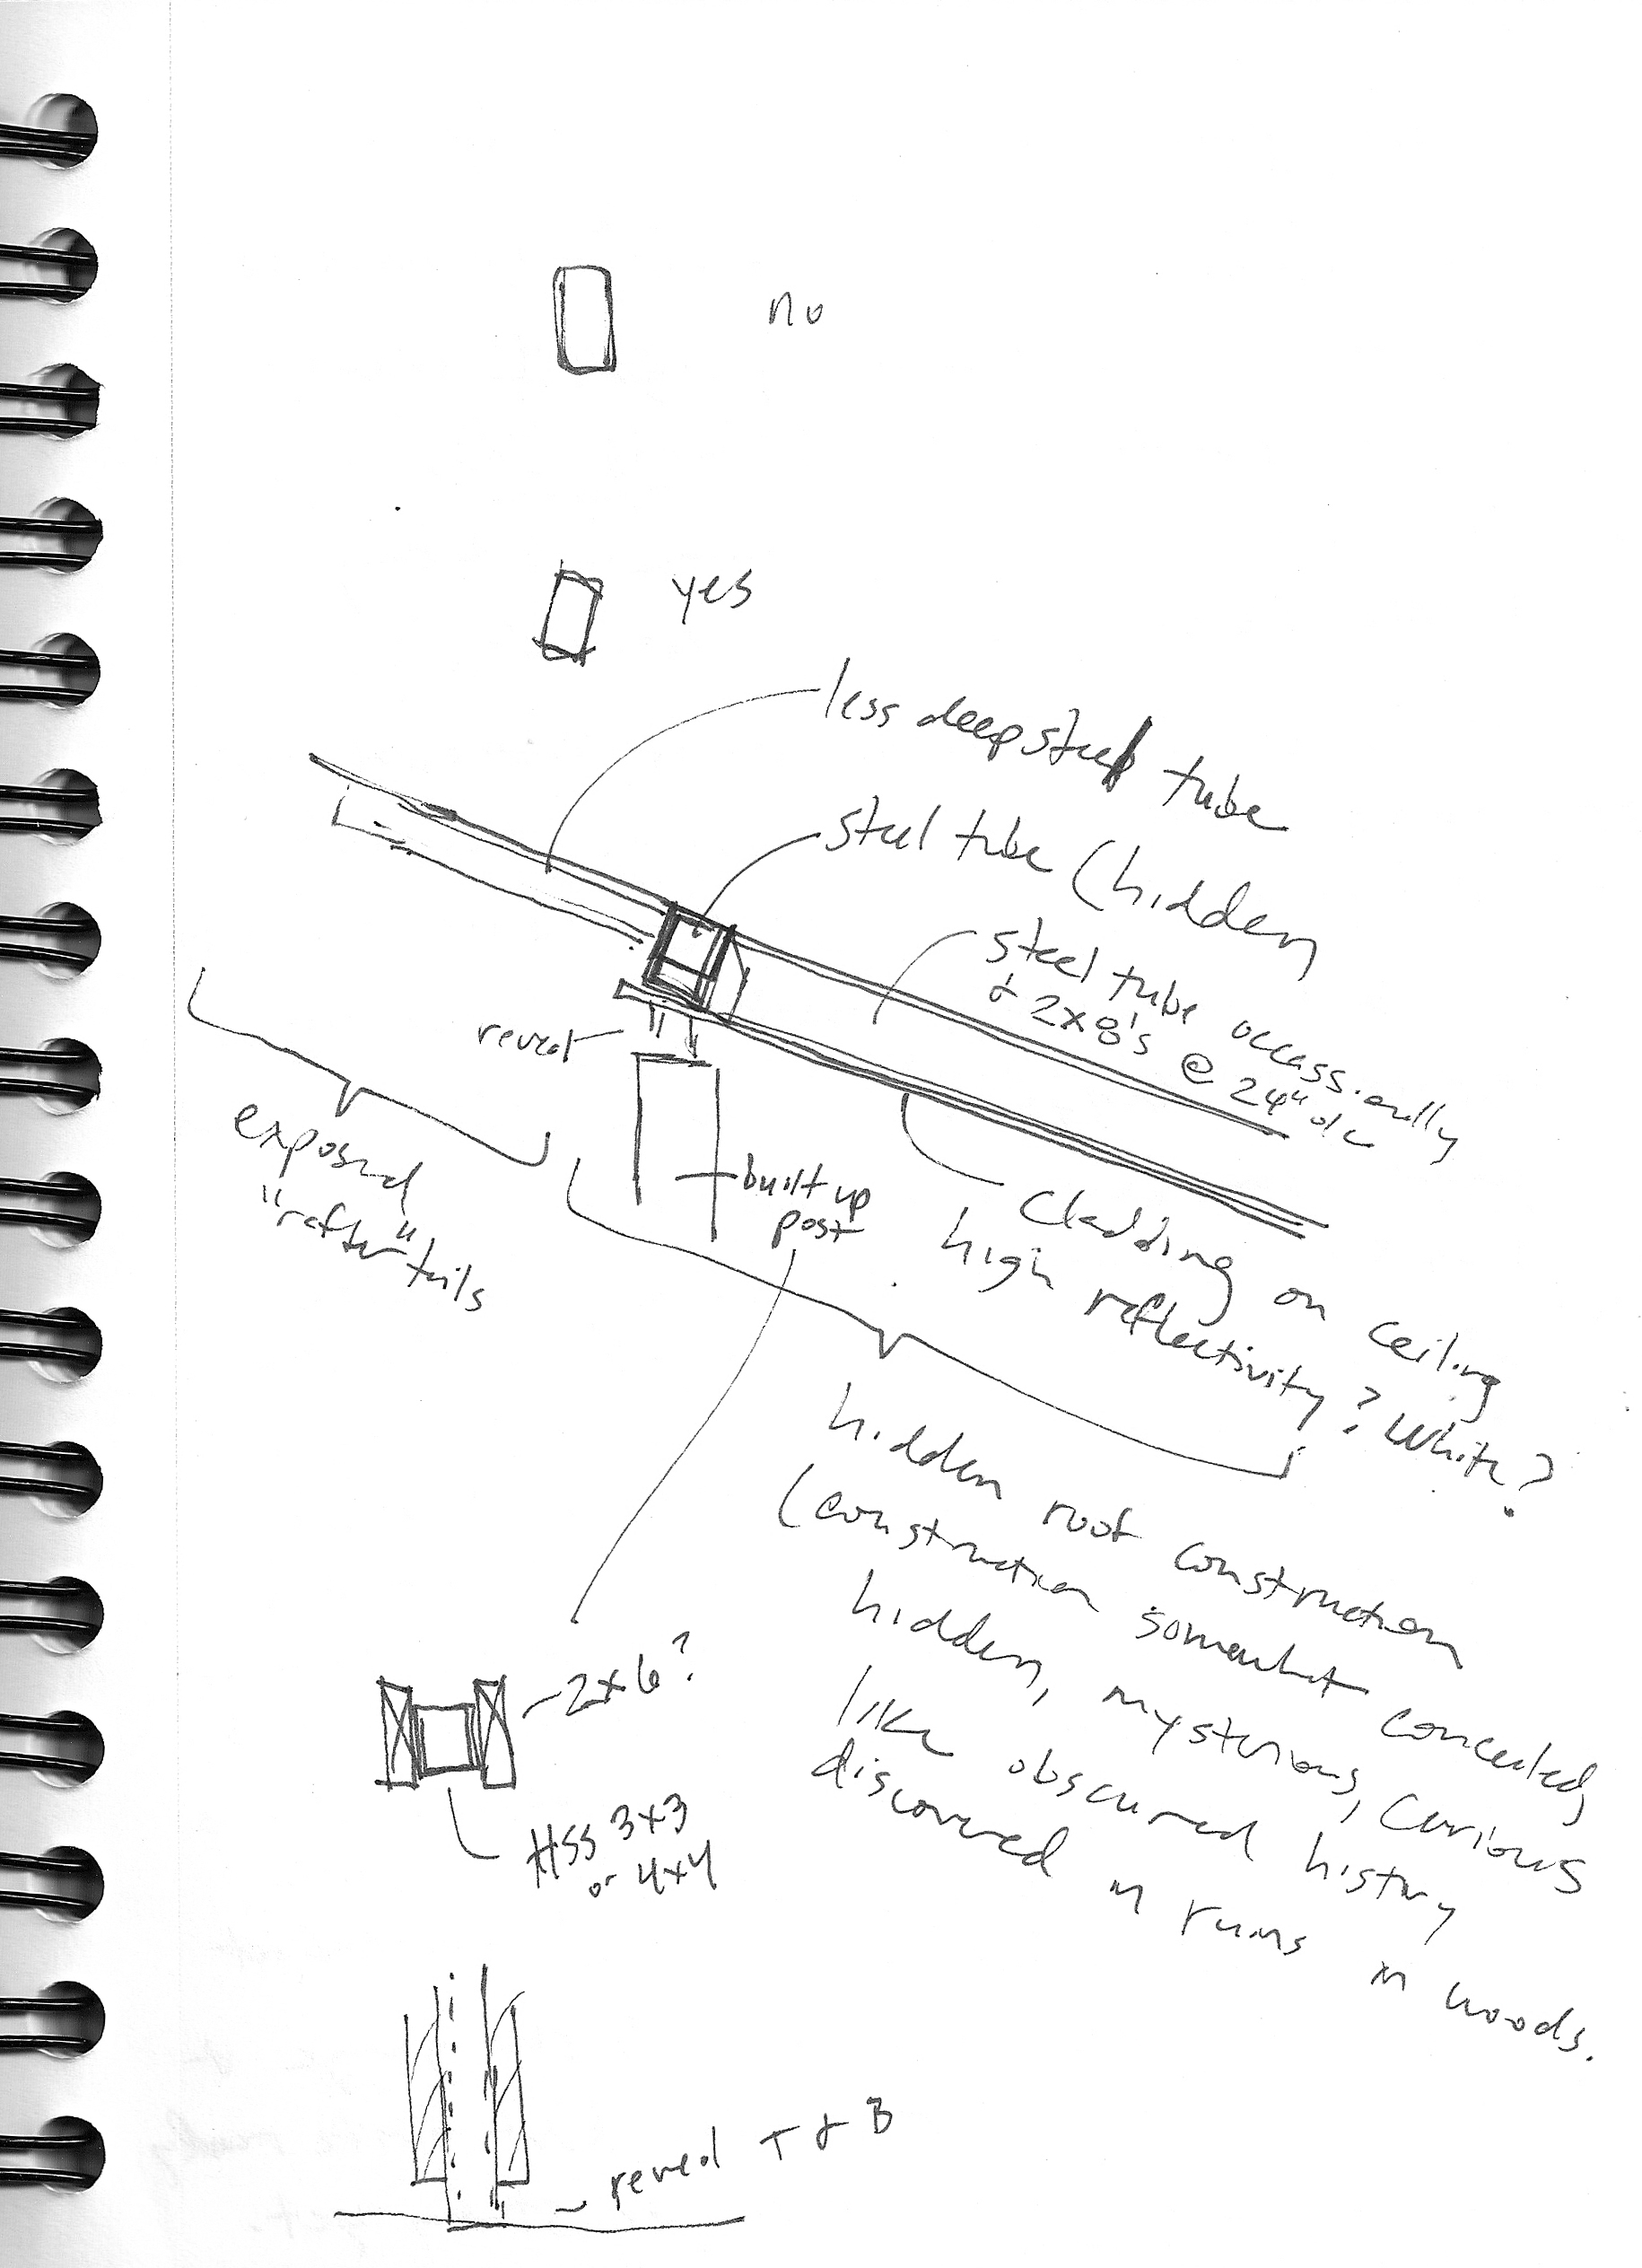 no
yes
less deep steel tube
steel tube (hidden
steel tube occassionally
& 2x8's @ 24" o/c
reveal
exposed
"rafter" tails
built up
post
Cladding on ceiling
high reflectivity? White?
hidden roof construction
(construction somewhat concealed,
hidden, mysterious, curious
like obscured history
discovered in ruins in woods.
2x6?
HSS 3x3
or 4x4
reveal T & B